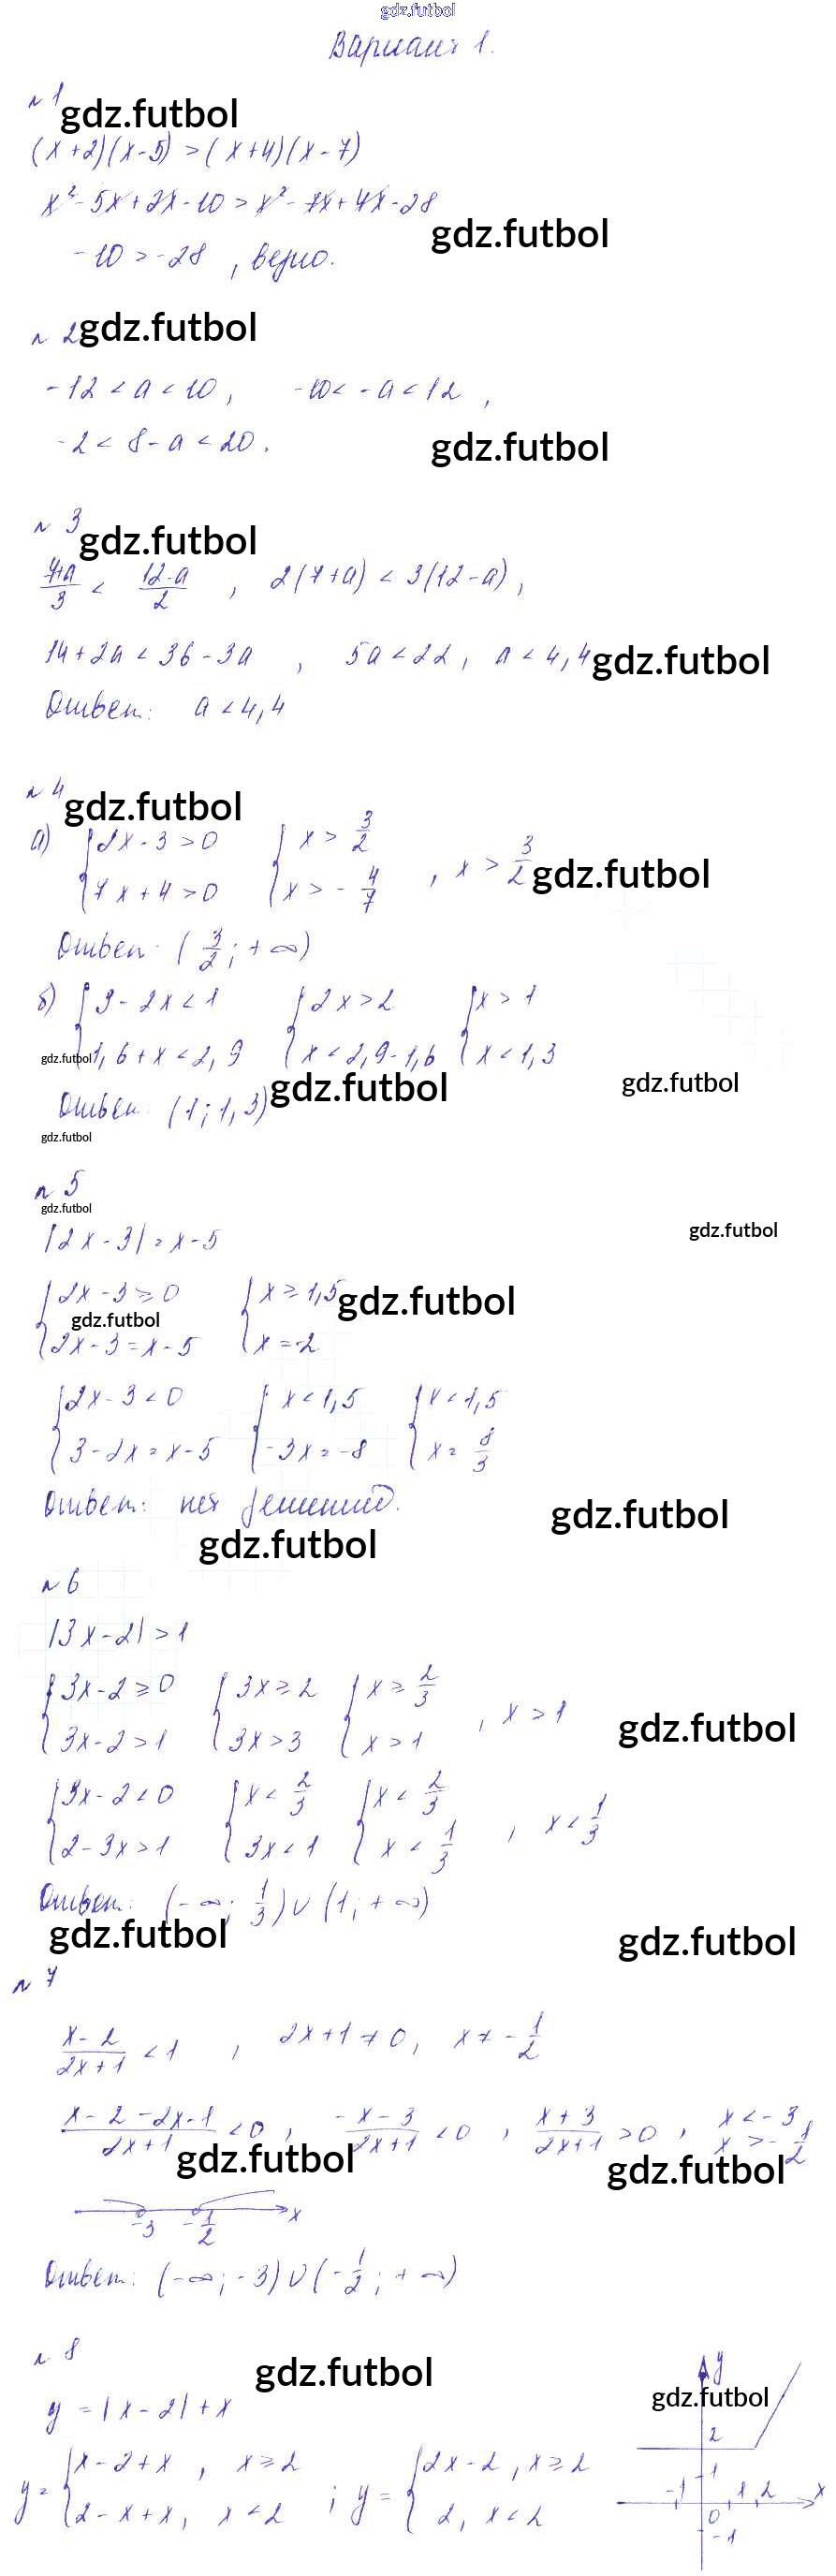 gdz.futbol
Вариант 1.
№ 1
gdz.futbol
(x+2)(x-5) > (x+4)(x-7)
x² - 5x + 2x - 10 > x² - 7x + 4x - 28
gdz.futbol
-10 > -28 , верно.
№ 2
gdz.futbol
-12 < a < 10 , -10 < -a < 12 ,
-2 < 8 - a < 20 .
gdz.futbol
№ 3
gdz.futbol
(7+a)/3 < (12-a)/2 , 2(7+a) < 3(12-a) ,
14 + 2a < 36 - 3a , 5a < 22 , a < 4,4
gdz.futbol
Ответ: a < 4,4
№ 4
gdz.futbol
а) { 2x - 3 > 0 { x > 3/2
{ 7x + 4 > 0 { x > - 4/7 , x > 3/2
gdz.futbol
Ответ: (3/2; +∞)
б) { 3 - 2x < 1 { 2x > 2 { x > 1
{ 1,6 + x < 2,9 { x < 2,9 - 1,6 { x < 1,3
gdz.futbol
gdz.futbol
gdz.futbol
Ответ: (1; 1,3)
gdz.futbol
№ 5
gdz.futbol
|2x - 3| = x - 5
gdz.futbol
{ 2x - 3 ≥ 0 { x ≥ 1,5
gdz.futbol
gdz.futbol
{ 2x - 3 = x - 5 { x = -2
{ 2x - 3 < 0 { x < 1,5 { x < 1,5
{ 3 - 2x = x - 5 { -3x = -8 { x = 8/3
Ответ: нет решений.
gdz.futbol
gdz.futbol
№ 6
|3x - 2| > 1
{ 3x - 2 ≥ 0 { 3x ≥ 2 { x ≥ 2/3
{ 3x - 2 > 1 { 3x > 3 { x > 1 , x > 1
gdz.futbol
{ 3x - 2 < 0 { x < 2/3 { x < 2/3
{ 2 - 3x > 1 { 3x < 1 { x < 1/3 , x < 1/3
Ответ: (-∞; 1/3) ∪ (1; +∞)
gdz.futbol
gdz.futbol
№ 7
(x-2)/(2x+1) < 1 , 2x+1 ≠ 0 , x ≠ - 1/2
(x-2-2x-1)/(2x+1) < 0 , (-x-3)/(2x+1) < 0 , (x+3)/(2x+1) > 0 , x < -3
x > - 1/2
gdz.futbol
gdz.futbol
-3 - 1/2 x
Ответ: (-∞; -3) ∪ (- 1/2; +∞)
№ 8
gdz.futbol
y = |x - 2| + x
y = { x - 2 + x , x ≥ 2 ; y = { 2x - 2 , x ≥ 2
{ 2 - x + x , x < 2 { 2 , x < 2
y
gdz.futbol
2
1
-1 1 2 x
0
-1